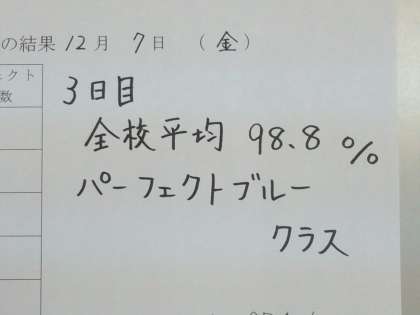 の結果 12月 7日 (金)
ェクト
数
3日目
全校平均 98.8%
パーフェクトブルー
クラス